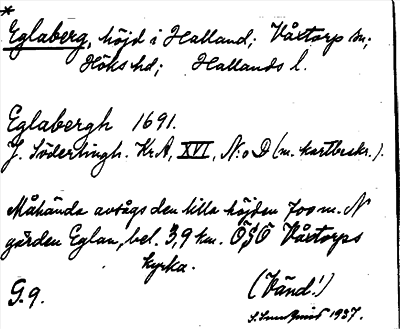 *
Eglaberg, höjd i Halland; Våxtorp sn;
Höks hd; Hallands l.
Eglabergh 1691.
J. Söderlingh. KrA, XVI, N:o D (m. kartbeskr.).
Måhända avsågs den lilla höjden 700 m. N
gården Eglan, bel. 3,9 km. ÖSÖ Våxtorps
kyrka.
G. 9. (Vänd!)
1937.